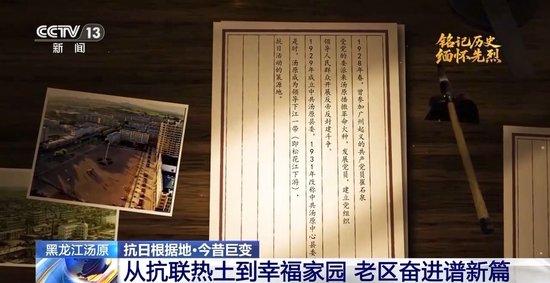 CCTV 13
新闻
铭记历史
缅怀先烈
1928年春，曾参加广州起义的共产党员崔石泉
受党的委派来汤原播撒革命火种，发展党员，建立党组织
领导人民群众开展反帝反封建斗争。
1929年成立中共汤原县委，1931年改称中共汤原中心县委
是时，汤原成为领导下江一带（即松花江下游）
抗日活动的策源地。
黑龙江汤原
抗日根据地·今昔巨变
从抗联热土到幸福家园 老区奋进谱新篇